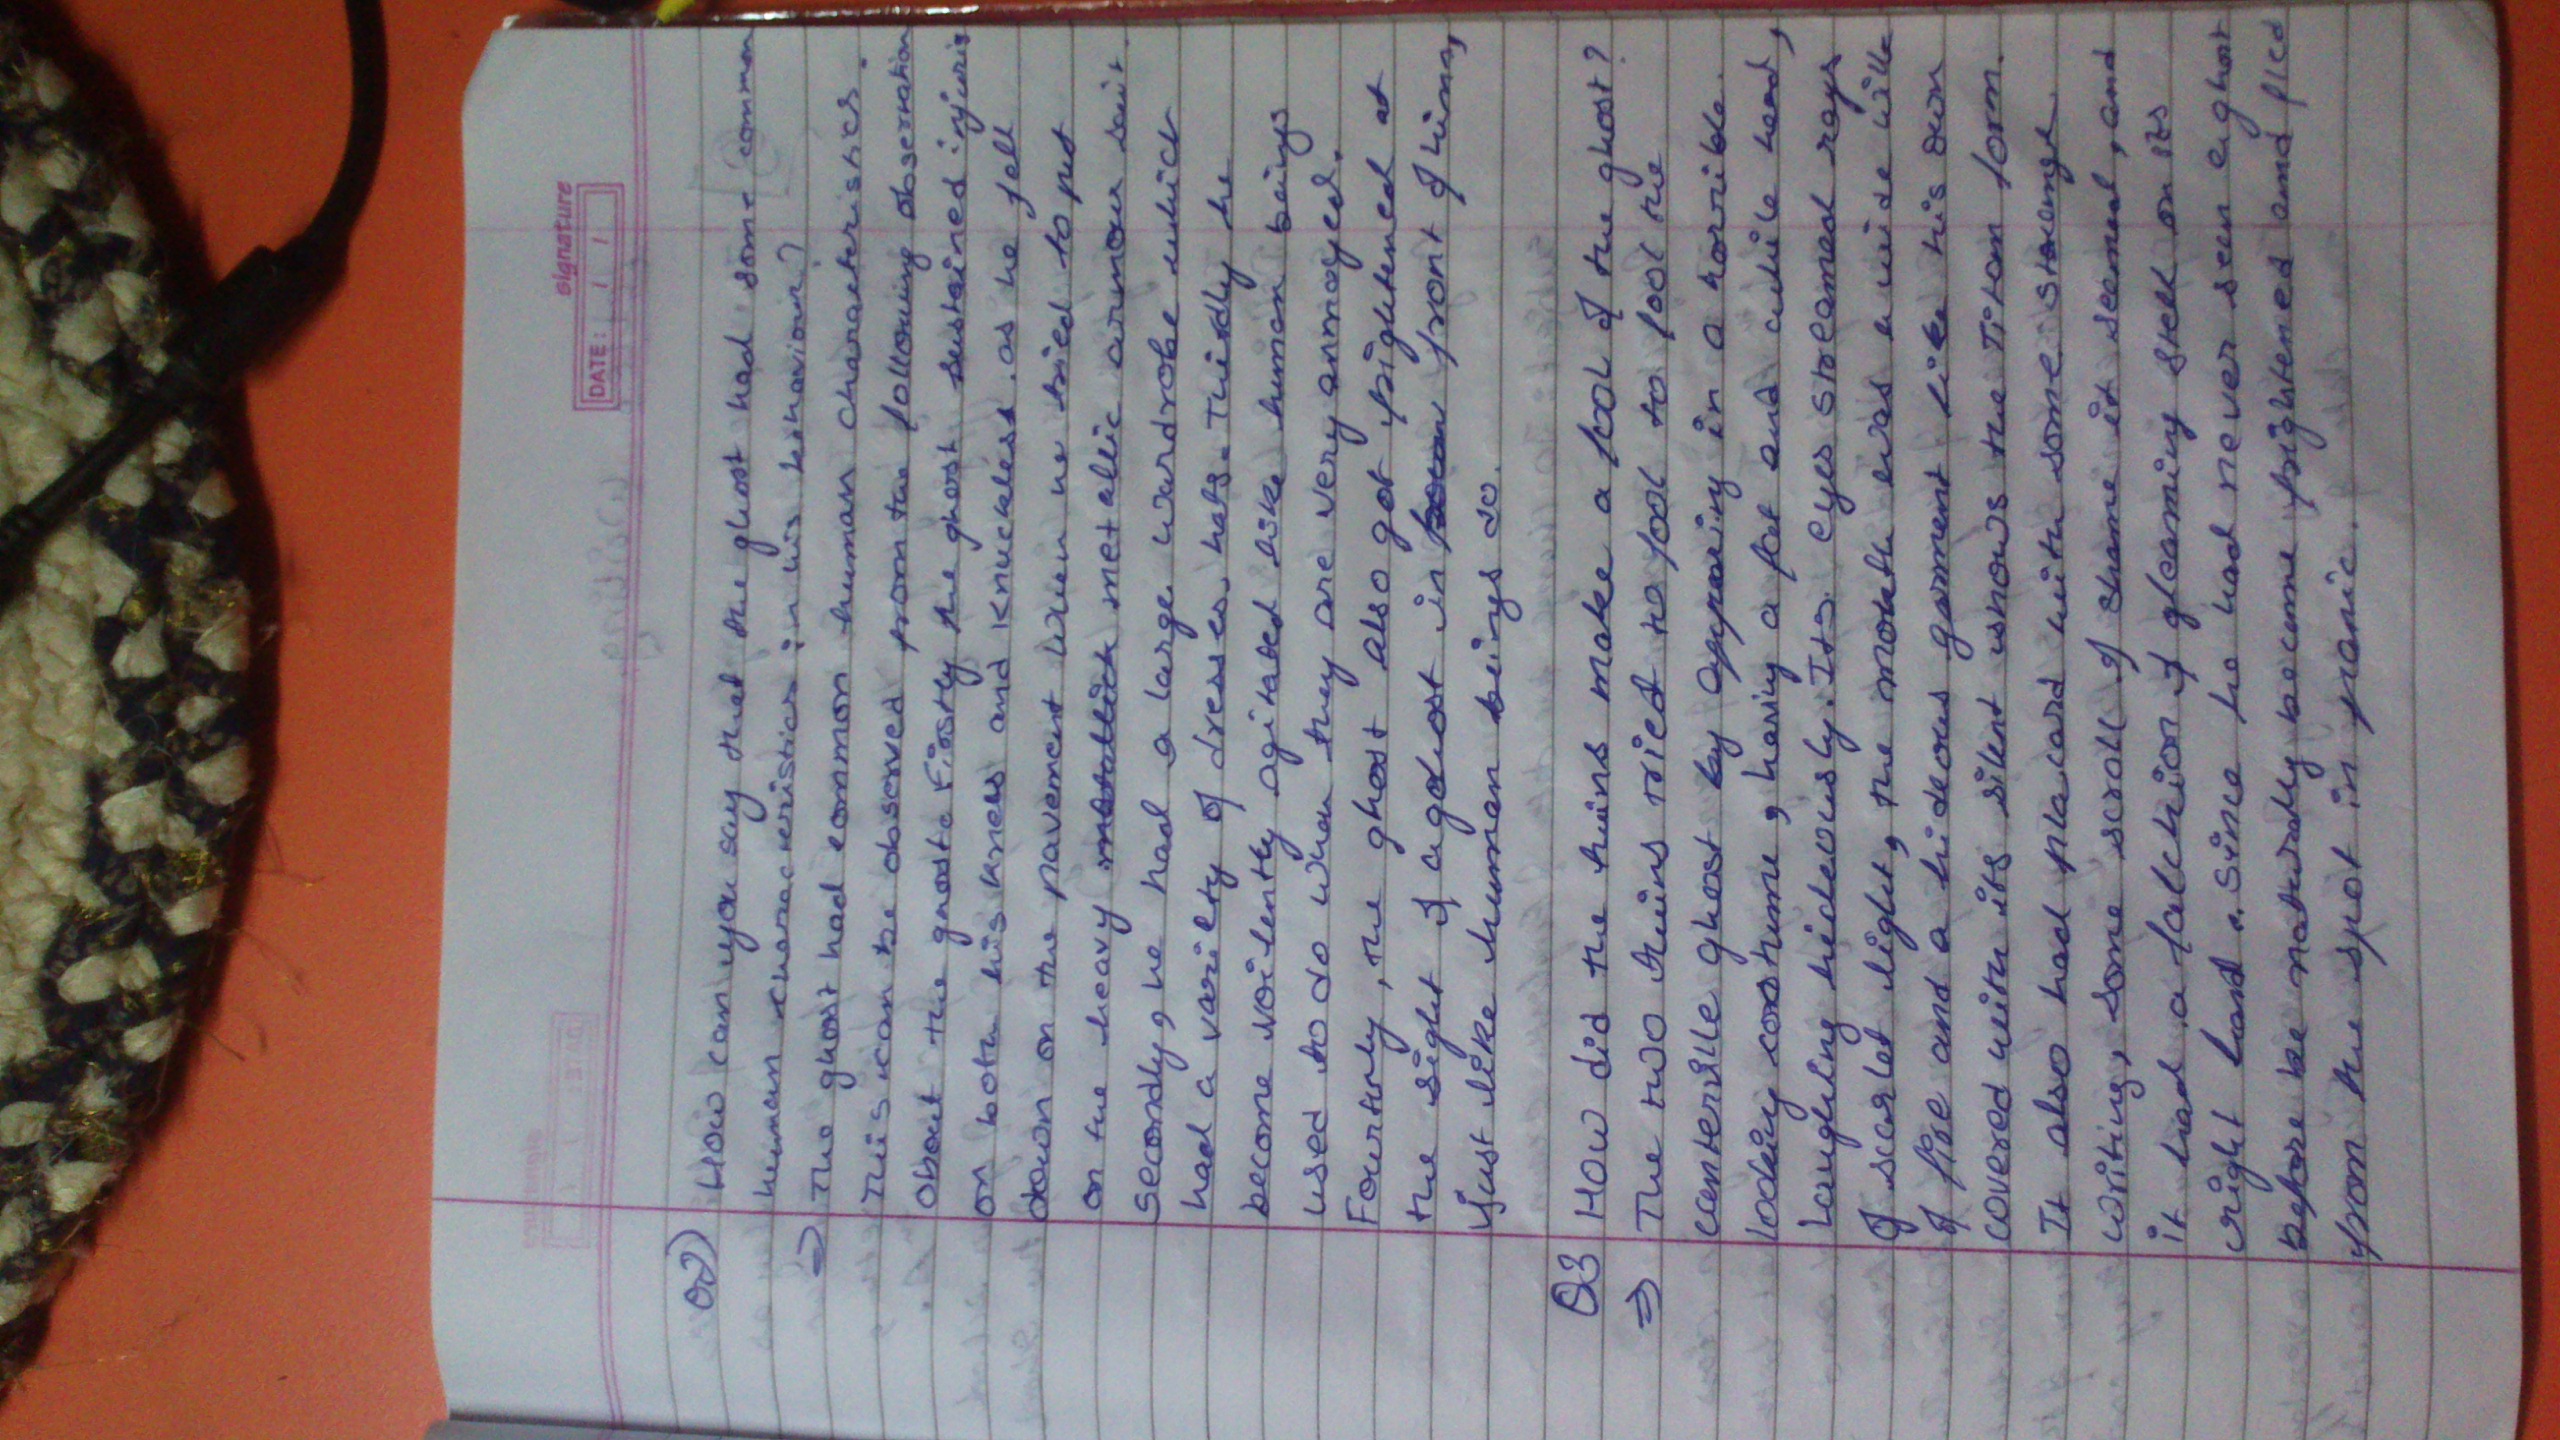 signature
DATE: / /
Q2) How can you say that the ghost had some common
human characteristics in his behaviour?
⇒ The ghost had common human characteristics.
This can be observed from the following observation
about the ghost. Firstly the ghost sustained injuris
on both his knees and knuckles. as he fell
down on the pavement when he tried to put
on the heavy metallic armour suit.
Secondly, he had a large wardrobe which
had a variety of dresses, hats. Thirdly the
become voilently agitated like human beings
used to do when they are very annoyed.
Fourthly, the ghost also got frightened at
the sight of a ghost in front of him,
just like human beings do.
Q3 How did the twins make a fool of the ghost?
⇒ The two twins tried to fool to fool the
canterville ghost by appearing in a horrible.
looking costume, having a fat and white head,
Laughing hideously. Its eyes streamed rays
of scarlet light, the mouth was a wide wille
of fire and a hideous garment like his own
covered with its silent snows the Titan form.
It also had placard with some strange
writing, some scroll of shame it seemed, and
it had a falchion of gleaming steel on its
right hand. Since he had never seen a ghost
before he naturally became frightened and fled
from the spot in panic.